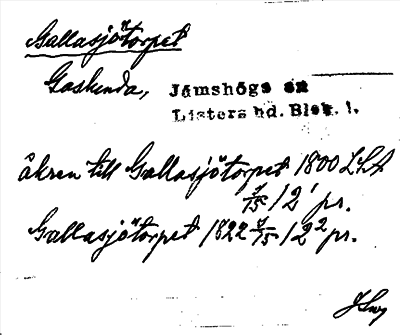 Gallasjötorpet
Gaslunda,
Jämshögs sn
Listers hd. Blek. l.
åkren till Gallasjötorpet 1800 LSA
7/15 12' pr.
Gallasjötorpet 1822 7/15 12² pr.